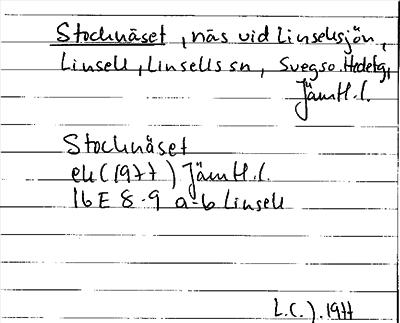 Stocknäset, näs vid Linsellsjön,
Linsell, Linsells sn, Svegs o. Hedetg,
Jämtl. l.
Stocknäset
ek (1977) Jämtl. l.
16E 8-9 a-b Linsell
L.C.J. 1977